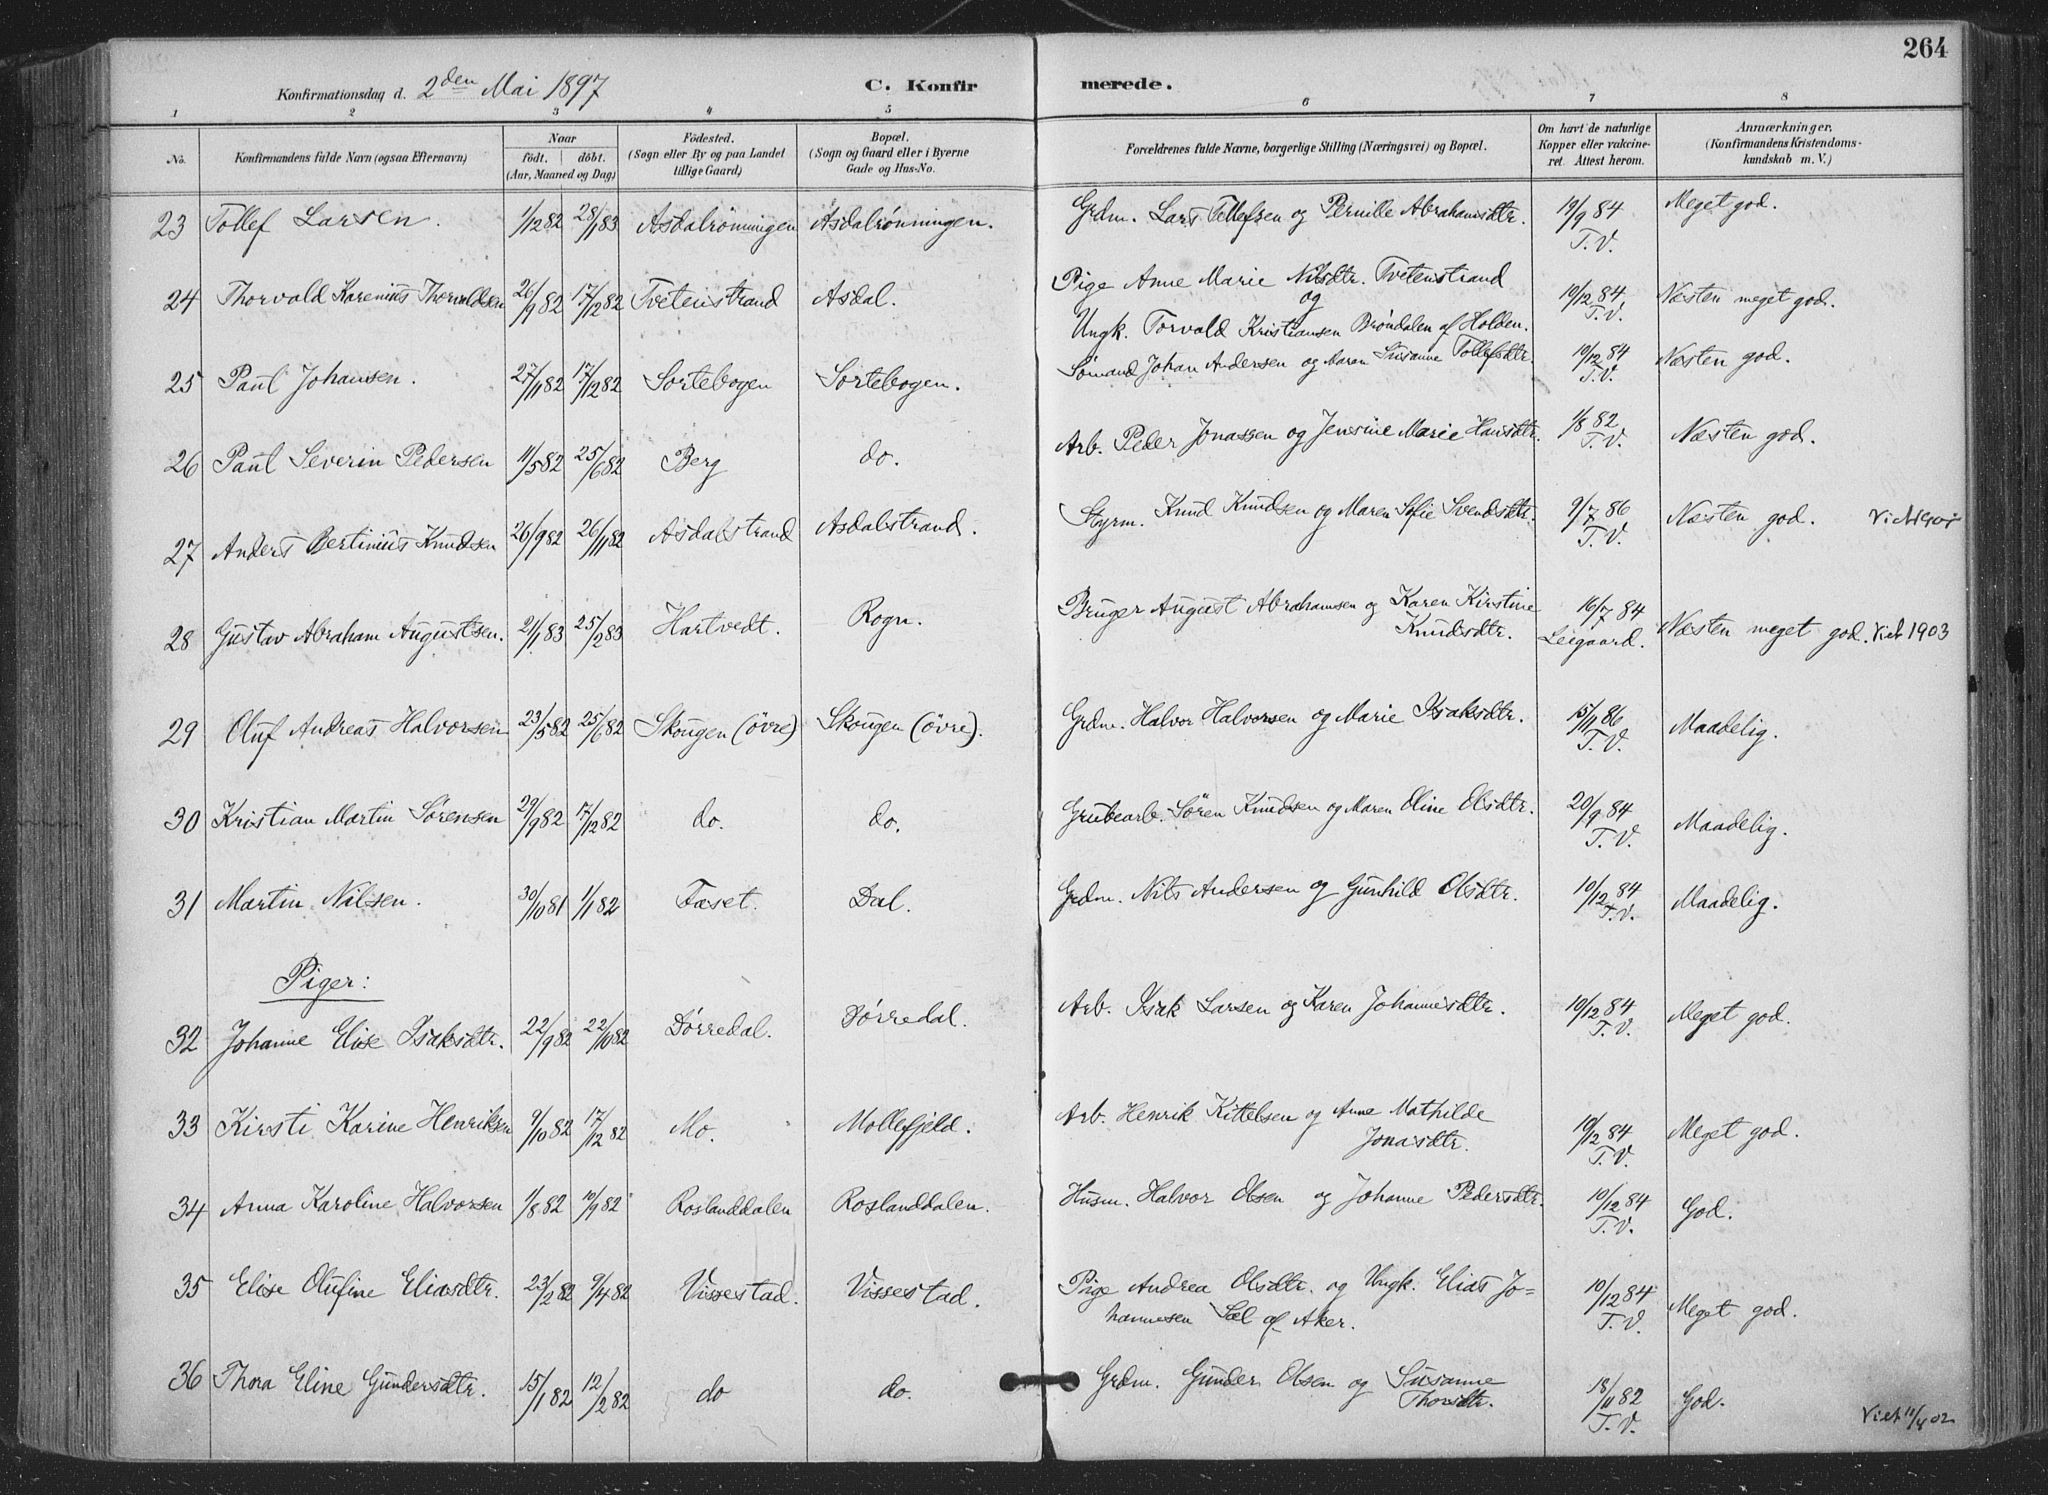 264
Konfirmationsdag d. 2den Mai 1897 C. Konfirmerede.
1 2 3 4 5 6 7 8
No. Konfirmandens fulde Navn (ogsaa Efternavn) Naar födt. döbt. (Aar, Maaned og Dag) Födested. (Sogn eller By og paa Landet tillige Gaard) Bopæl. (Sogn og Gaard eller i Byerne Gade og Hus-No. Forældrenes fulde Navne, borgerlige Stilling (Næringsvei) og Bopæl. Om havt de naturlige Kopper eller vaccineret. Attest herom. Anmærkninger. (Konfirmandens Kristendomskundskab m. V.)
23 Tollef Larsen. 1/12 82 28/1 83 Asdalrönningen Asdalrönningen. Grdm. Lars Tollefsen og Pernille Abrahamsdtr. 19/9 84 T. V. Meget god.
24 Thorvald Karenius Thorvaldsen 26/9 82 17/12 82 Tvetenstrand Asdal. Pige Anne Marie Nilsdtr. Tvetenstrand og Ungk. Torvald Kristiansen Bröndalen af Holden. 10/12 84 T. V. Næsten meget god.
25 Paul Johansen. 27/11 82 17/12 82 Sortebogen Sortebogen. Sömand Johan Andersen og Maren Susanne Tollefsdtr. 10/12 84 T. V. Næsten god.
26 Paul Severin Pedersen 11/5 82 25/6 82 Berg do. Arb. Peder Jonassen og Jensine Marie Hansdtr. 1/8 82 T. V. Næsten god.
27 Anders Bertinius Knudsen 26/9 82 26/11 82 Asdalstrand Asdalstrand. Styrm. Knud Knudsen og Maren Sofie Svendsdtr. 9/7 86 T. V. Næsten god.
28 Gustav Abraham Augustsen. 21/1 83 25/2 83 Hartvedt. Rogn. Bruger August Abrahamsen og Karen Kirstine Knudsdtr. 16/7 84 Leigaard. Næsten meget god. Viet 1903
29 Oluf Andreas Halvorsen 23/5 82 25/6 82 Skougen (övre) Skougen (övre). Grdm. Halvor Halvorsen og Marie Isaksdtr. 15/11 86 T. V. Maadelig.
30 Kristian Martin Sörensen 29/9 82 17/12 82 do. do. Grubearb. Sören Knudsen og Maren Oline Olsdtr. 20/9 84 T. V. Maadelig.
31 Martin Nilsen. 30/10 81 1/1 82 Faset. Dal. Grdm. Nils Andersen og Gunhild Olsdtr. 10/12 84 T. V. Maadelig.
Piger:
32 Johanne Elise Isaksdtr. 22/9 82 22/10 82 Dörredal. Dörredal. Arb. Isak Larsen og Karen Johannesdtr. 10/12 84 T. V. Meget god.
33 Kirsti Karine Henriksen 9/10 82 17/12 82 Mo. Mollefjeld. Arb. Henrik Kittelsen og Anne Mathilde Jonasdtr. 10/12 84 T. V. Meget god.
34 Anna Karoline Halvorsen 1/8 82 10/9 82 Roslanddalen Roslanddalen. Husm. Halvor Olsen og Johanne Pedersdtr. 10/12 84 T. V. God.
35 Elise Olufine Eliasdtr. 23/2 82 9/4 82 Vissestad. Vissestad. Pige Andrea Olsdtr. og Ungk. Elias Johannesen Sæl af Aker. 10/12 84 T. V. Meget god.
36 Thora Eline Gundersdtr. 15/1 82 12/2 82 do do. Grdm. Gunder Olsen og Susanne Thorsdtr. 18/11 82 T. V. God. Viet 11/8 02